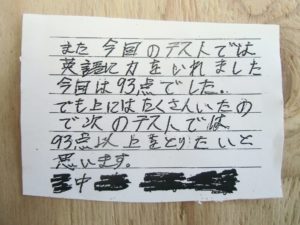 また今回のテストでは
英語に力をいれました
今回は93点でした。
でも上にはたくさんいたの
で次のテストでは、
93点以上をとりたいと
思います。
中